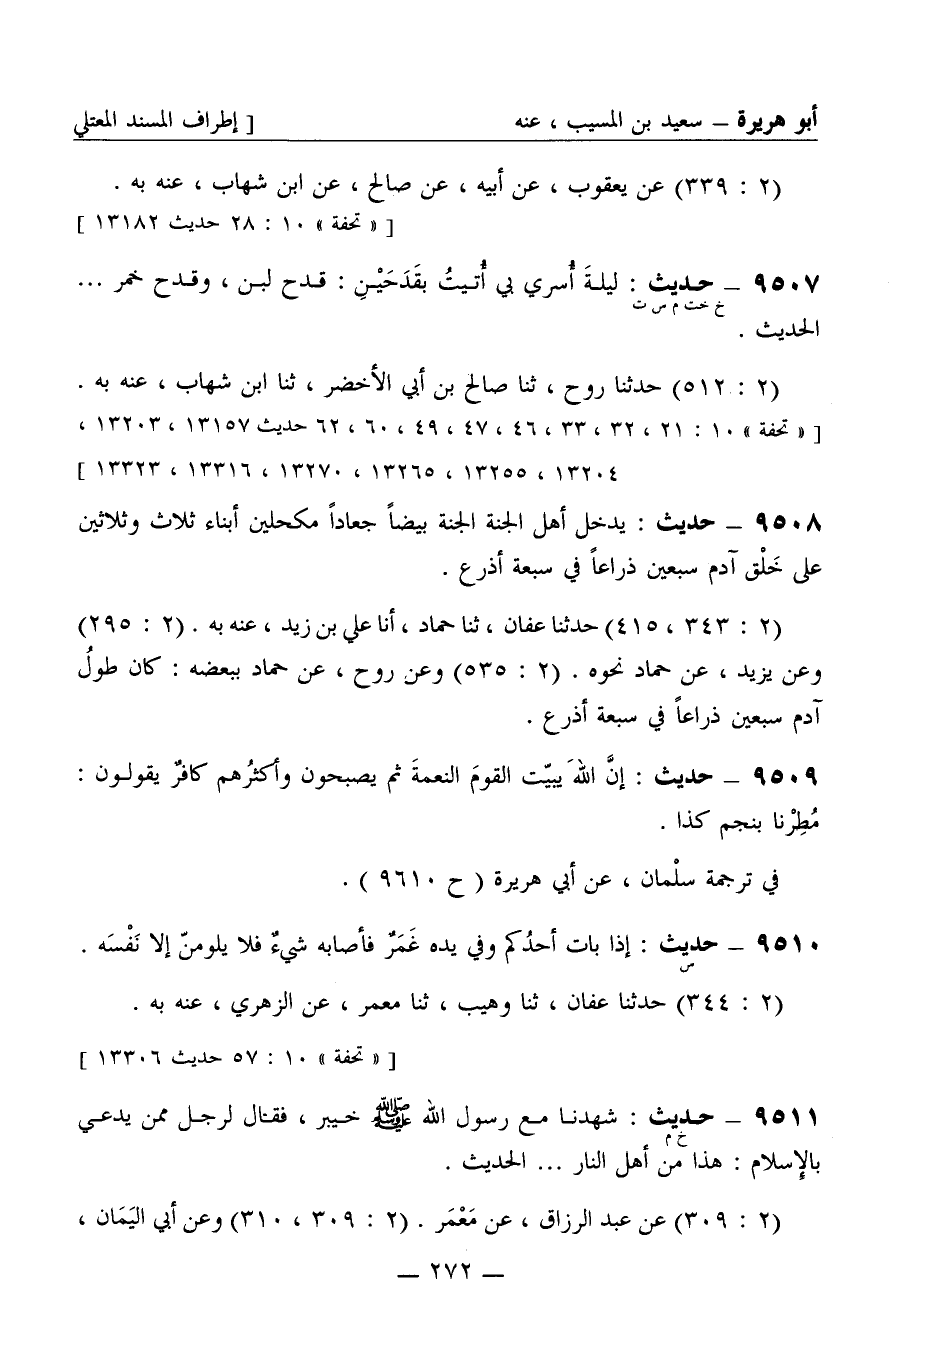 أبو هريرة ــ سعيد بن المسيب ، عنه [ إطراف المسند المعتلي
(٢ : ٣٣٩) عن يعقوب ، عن أبيه ، عن صالح ، عن ابن شهاب ، عنه به .
[ « تحفة » ١٠ : ٢٨ حديث ١٣١٨٢ ]
٩٥٠٧ ــ حديث : ليلةَ أُسري بي أُتيتُ بقَدَحَيْنِ : قدح لبن ، وقدح خمر ...
خ خت م س ت
الحديث .
(٢ : ٥١٢) حدثنا روح ، ثنا صالح بن أبي الأخضر ، ثنا ابن شهاب ، عنه به .
[ « تحفة » ١٠ : ٢١ ، ٣٢ ، ٣٣ ، ٤٦ ، ٤٧ ، ٤٩ ، ٦٠ ، ٦٢ حديث ١٣١٥٧ ، ١٣٢٠٣ ،
١٣٢٠٤ ، ١٣٢٥٥ ، ١٣٢٦٥ ، ١٣٢٧٠ ، ١٣٣١٦ ، ١٣٣٢٣ ]
٩٥٠٨ ــ حديث : يدخل أهل الجنة الجنة بيضاً جعاداً مكحلين أبناء ثلاث وثلاثين
على خَلْق آدم سبعين ذراعاً في سبعة أذرع .
(٢ : ٣٤٣ ، ٤١٥) حدثنا عفان ، ثنا حماد ، أنا علي بن زيد ، عنه به . (٢ : ٢٩٥)
وعن يزيد ، عن حماد نحوه . (٢ : ٥٣٥) وعن روح ، عن حماد ببعضه : كان طولُ
آدم سبعين ذراعاً في سبعة أذرع .
٩٥٠٩ ــ حديث : إنَّ اللهَ يبيّت القومَ النعمةَ ثم يصبحون وأكثرُهم كافرٌ يقولون :
مُطِرْنا بنجم كذا .
في ترجمة سلْمان ، عن أبي هريرة ( ح ٩٦١٠ ) .
٩٥١٠ ــ حديث : إذا بات أحدُكم وفي يده غَمَرٌ فأصابه شيءٌ فلا يلومنّ إلا نَفْسَه .
س
(٢ : ٣٤٤) حدثنا عفان ، ثنا وهيب ، ثنا معمر ، عن الزهري ، عنه به .
[ « تحفة » ١٠ : ٥٧ حديث ١٣٣٠٦ ]
٩٥١١ ــ حديث : شهدنا مع رسول الله ﷺ خيبر ، فقال لرجل ممن يدعي
خ م
بالإسلام : هذا من أهل النار ... الحديث .
(٢ : ٣٠٩) عن عبد الرزاق ، عن مَعْمَر . (٢ : ٣٠٩ ، ٣١٠) وعن أبي اليَمَان ،
ــ ٢٧٢ ــ